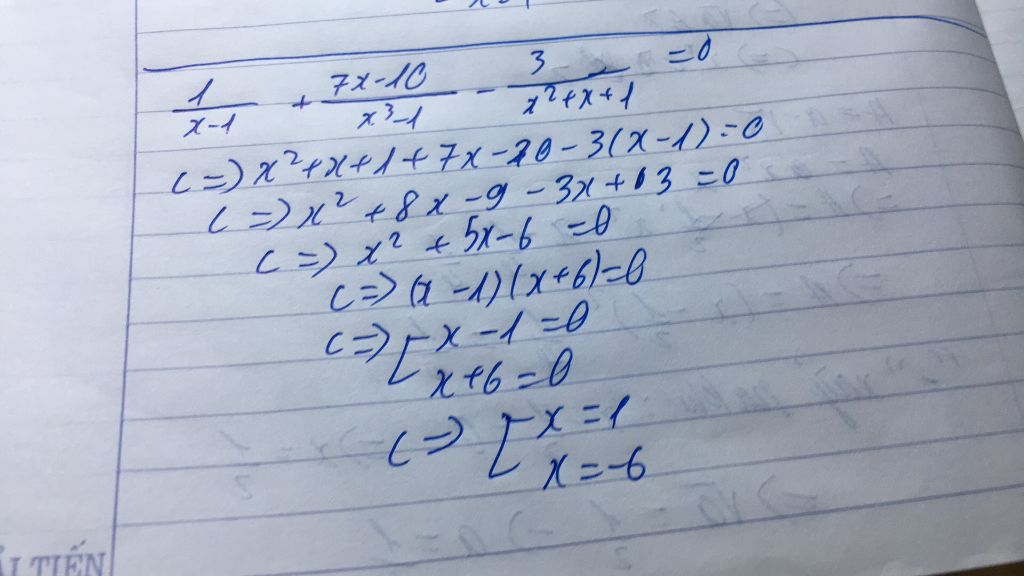 1/(x-1) + (7x-10)/(x³-1) - 3/(x²+x+1) = 0
<=> x²+x+1+7x-10-3(x-1)=0
<=> x²+8x-9-3x+3=0
<=> x²+5x-6=0
<=> (x-1)(x+6)=0
<=> [x-1=0
x+6=0
<=> [x=1
x=-6
TIẾN